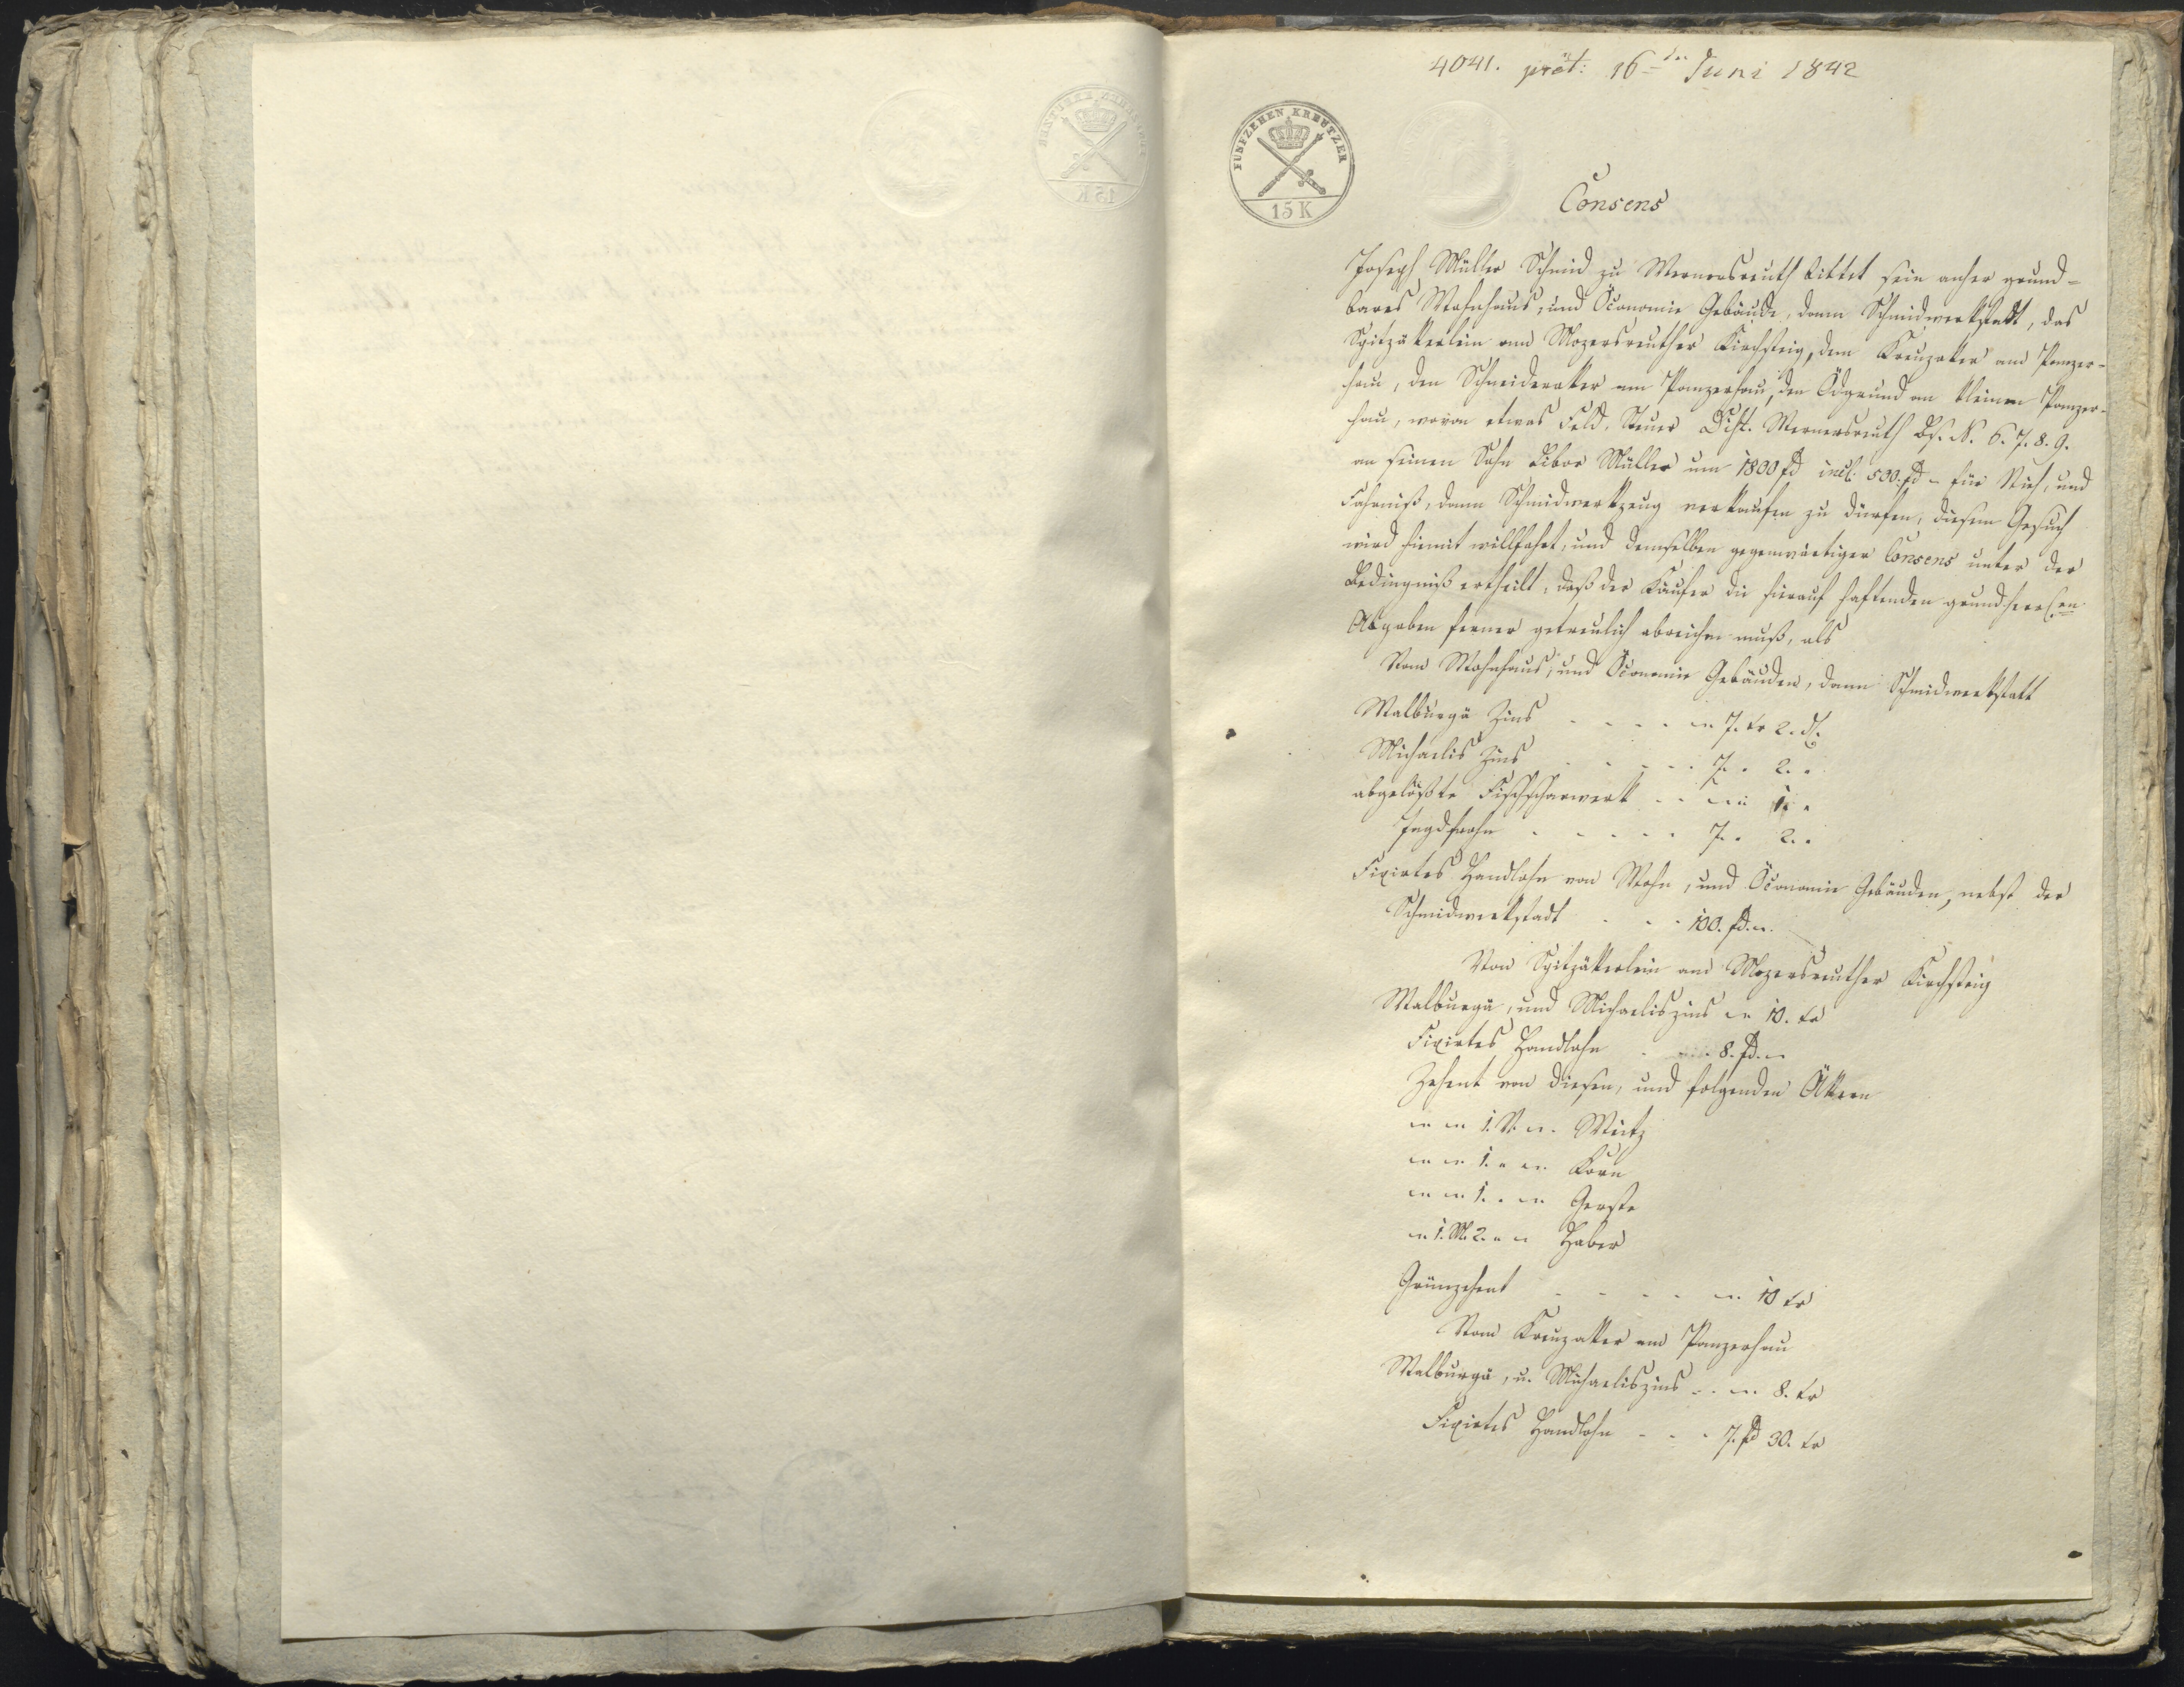 4041. prst: 16ten Juni 1842
FÜNFZEHEN KREUTZER
15 K
Consens
Joseph Müller Schmid zu Wernersreuth bittet sein anher grund-
bares Wohnhaus, und Öconomie Gebäude, dann Schmidwerkstadt, das
Spitzäkerlein am Mozersreuther Kirchsteig, den Kreuzaker am Panzer-
hau, den Schneideraker am Panzerhau, den Ödgrund am kleinen Panzer-
hau, wovon etwas Feld, Steuer Dist. Wernersreuth Bs. N. 6. 7. 8. 9.
an seinen Sohn Tibor Müller um 1800 fl incl. 500. fl – für Vieh, und
Fahrniß, dann Schmidwerkzeug verkaufen zu dürfen, diesem Gesuch
wird hiemit willfahrt, und demselben gegenwärtiger Consens unter der
Bedingniß ertheilt, daß der Käufer die hierauf haftenden grundherrl.en
Abgaben ferner getreulich abreichen muß, als
Vom Wohnhaus, und Öconomie Gebäuden, dann Schmidwerkstatt
Walburgä Zins - - - - 7. kr 2. dl.
Michaelis Zins - - - - 7. " 2. "
abgelößte Fischscharwerk - - 1. "
Jagdfrohn - - - - - 7. " 2. "
Fixirtes Handlohn von Wohn, und Öconomie Gebäuden, nebst der
Schmidwerkstadt - - - 100. fl. –
Von Spitzäkerlein am Mozersreuther Kirchsteig
Walburgä, und Michaeliszins – 10. kr
Fixirtes Handlohn - - 8. fl. –
Zehent von diesen, und folgenden Äkern
– – 1. V. – Weitz
– – 1. " – Korn
– – 1. " – Gerste
– 1. M. 2. " – Haber
Grünzehent - - - - – 10 kr
Vom Kreuzaker am Panzerhau
Walburgä, u. Michaeliszins - – 8. kr
Fixirtes Handlohn - - - 7. fl 30. kr